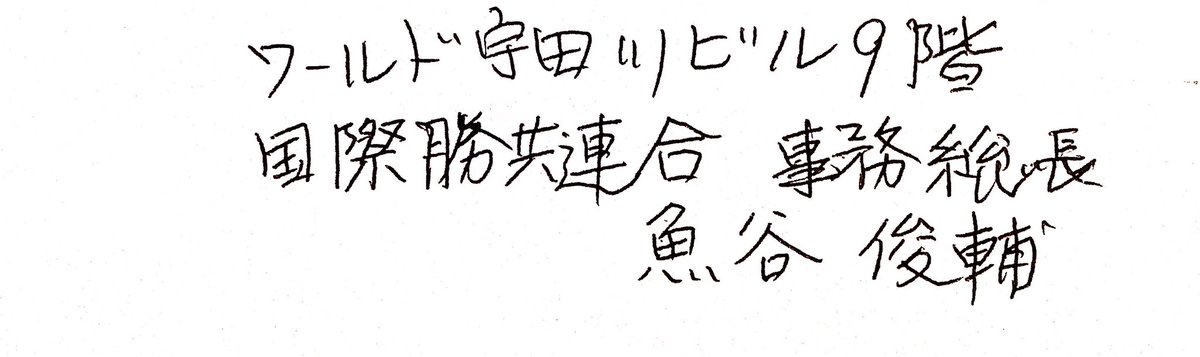 ワールド宇田川ビル9階
国際勝共連合 事務総長
魚谷 俊輔